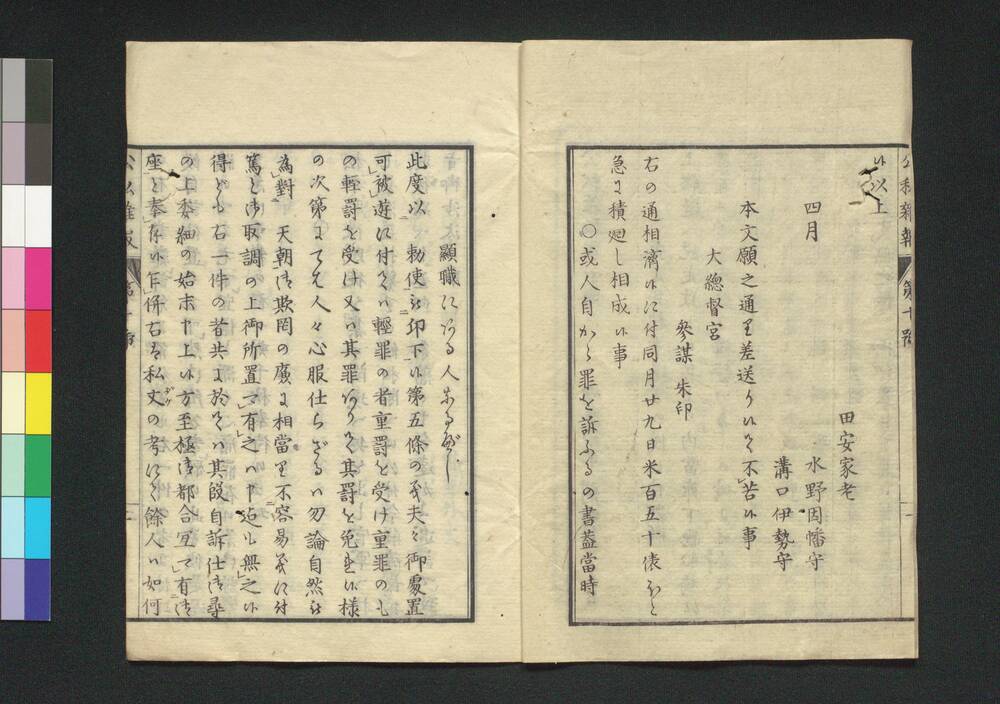 候以上
四月
田安家老
水野因幡守
溝口伊勢守
本文願之通り差送り候て不苦候事
大總督宮
參謀 朱印
右の通相濟候に付同月廿九日米百五十俵ほと
急に積廻し相成候事
○或人自から罪を訴ふるの書蓋當時
顯職にある人なるべし
此度以 勅使被 仰下候第五條の義夫々御處置
可被遊に付ては輕罪の者重罰を受け重罪のも
の輕罰を受け又は其罪ありて其罰を免れ候樣
の次第にては人々心服仕らざるは勿論自然被
為對 天朝御欺罔の廉に相當り不容易義に付
篤と御取調の上御所置可有之は申迄も無之候
得ども右一件の者共に於ては其段自訴仕御尋
の上委細の始末申上候方至極御都合宜可有御
座と奉存候乍併右は私丈の考にて餘人は如何
公私雜報
第十號